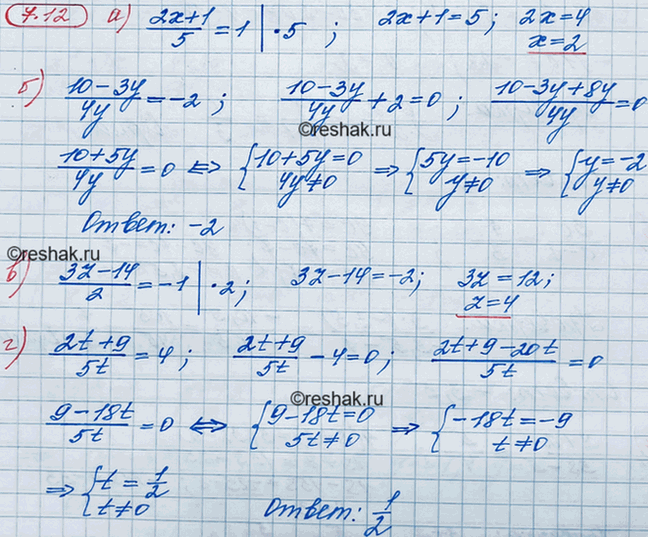 7.12 а) (2x+1)/5 = 1 | · 5 ; 2x+1=5; 2x=4
x=2
б) (10-3y)/4y = -2 ; (10-3y)/4y + 2 = 0 ; (10-3y+8y)/4y = 0
©reshak.ru
(10+5y)/4y = 0 ⇔ { 10+5y=0 ⇒ { 5y=-10 ⇒ { y=-2
4y≠0 y≠0 y≠0
Ответ: -2
©reshak.ru
в) (3z-14)/2 = -1 | · 2 ; 3z-14=-2; 3z=12;
z=4
г) (2t+9)/5t = 4 ; (2t+9)/5t - 4 = 0 ; (2t+9-20t)/5t = 0
©reshak.ru
(9-18t)/5t = 0 ⇔ { 9-18t=0 ⇒ { -18t=-9
5t≠0 t≠0
⇒ { t = 1/2
t≠0
Ответ: 1/2